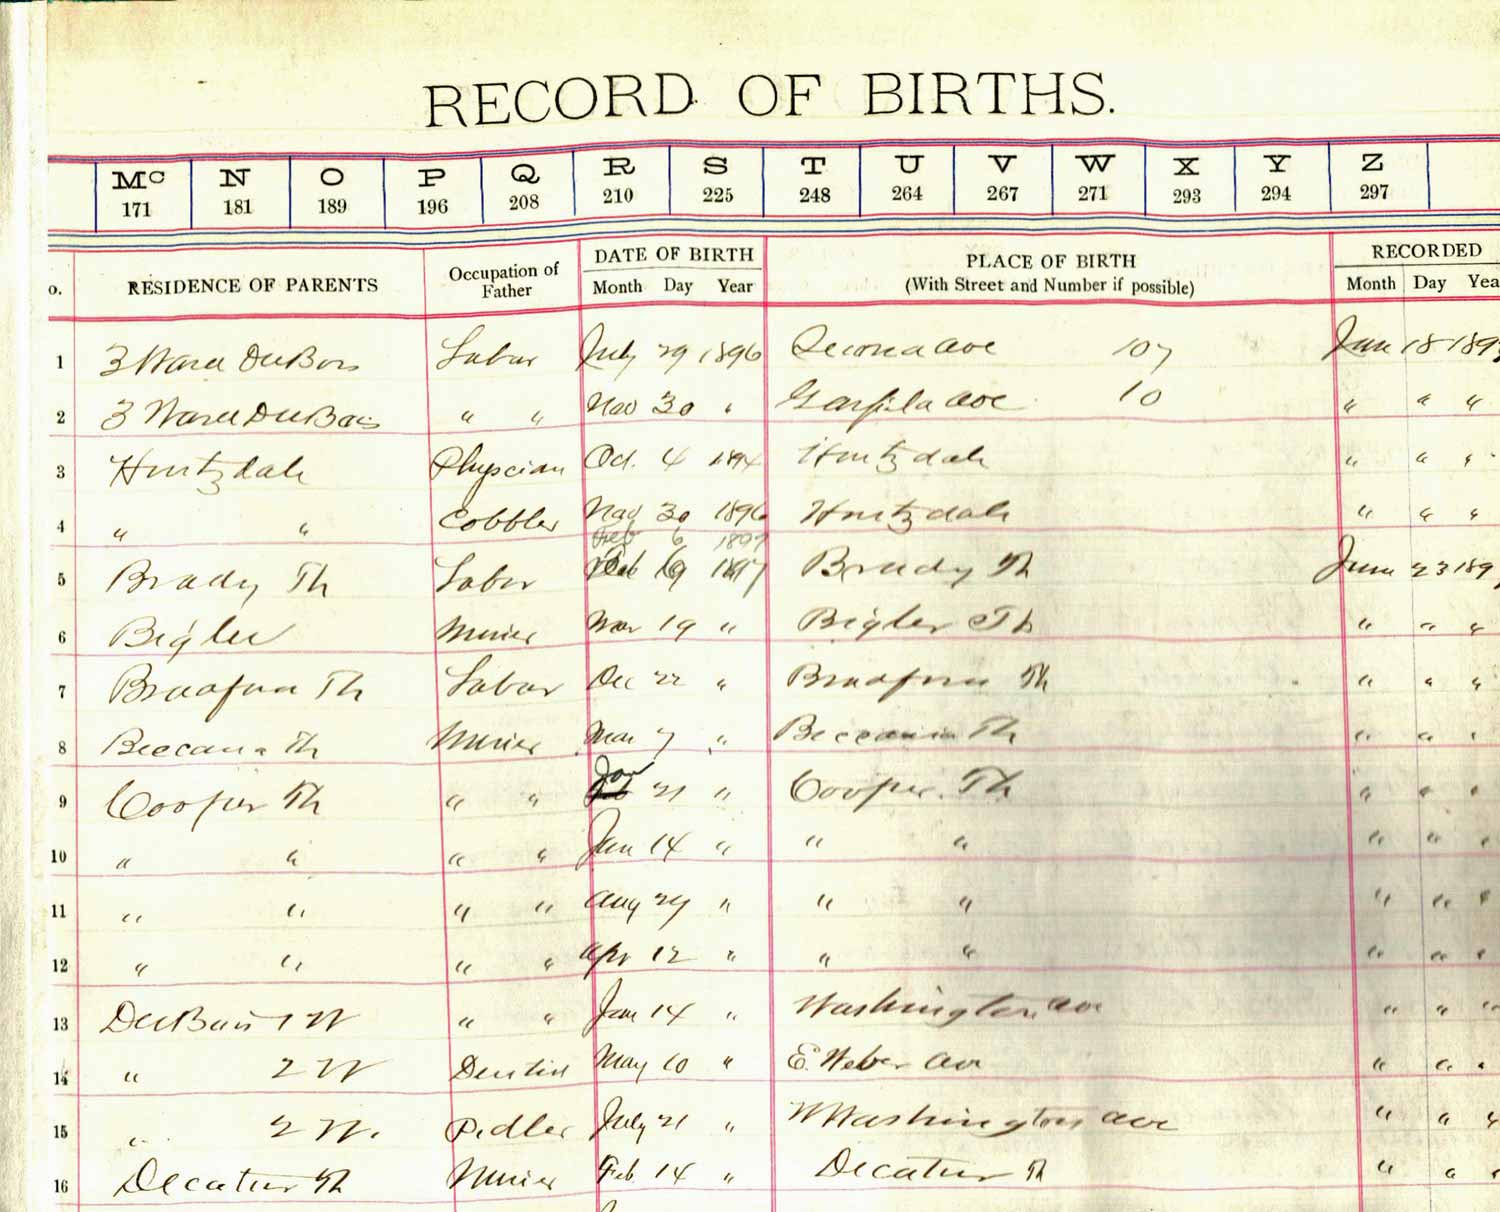 RECORD OF BIRTHS.
Mc N O P Q R S T U V W X Y Z
171 181 189 196 208 210 225 248 264 267 271 293 294 297
o. RESIDENCE OF PARENTS Occupation of Father DATE OF BIRTH Month Day Year PLACE OF BIRTH (With Street and Number if possible) RECORDED Month Day Yea
1 3 Ward DuBois Labor July 29 1896 Second Ave 107 Jan 18 189
2 3 Ward DuBois " " Nov 30 " Garfield Ave 10 " " "
3 Houtzdale Physcian Oct. 4 1894 Houtzdale " " "
4 " " Cobbler Nov 30 1896 Houtzdale " " "
Feb 6 1897
5 Brady Th Labor 1897 Brady Th June 23 189
6 Bigler Miner Mar 19 " Bigler Th " " "
7 Bradford Th Labor Dec 22 " Bradford Th " " "
8 Beccaria Th Miner Mar 7 " Beccaria Th " " "
9 Cooper Th " " Jan 21 " Cooper Th " " "
10 " " " " Jan 14 " " " " " "
11 " " " " Aug 29 " " " " " "
12 " " " " Apr 12 " " " " " "
13 DuBois 1 W " " Jan 14 " Washington Ave " " "
14 " 2 W Dentist May 10 " E. Weber Ave " " "
15 " 2 W. Pedler July 21 " Washington Ave " " "
16 Decatur Th Miner Feb 14 " Decatur Th " " "